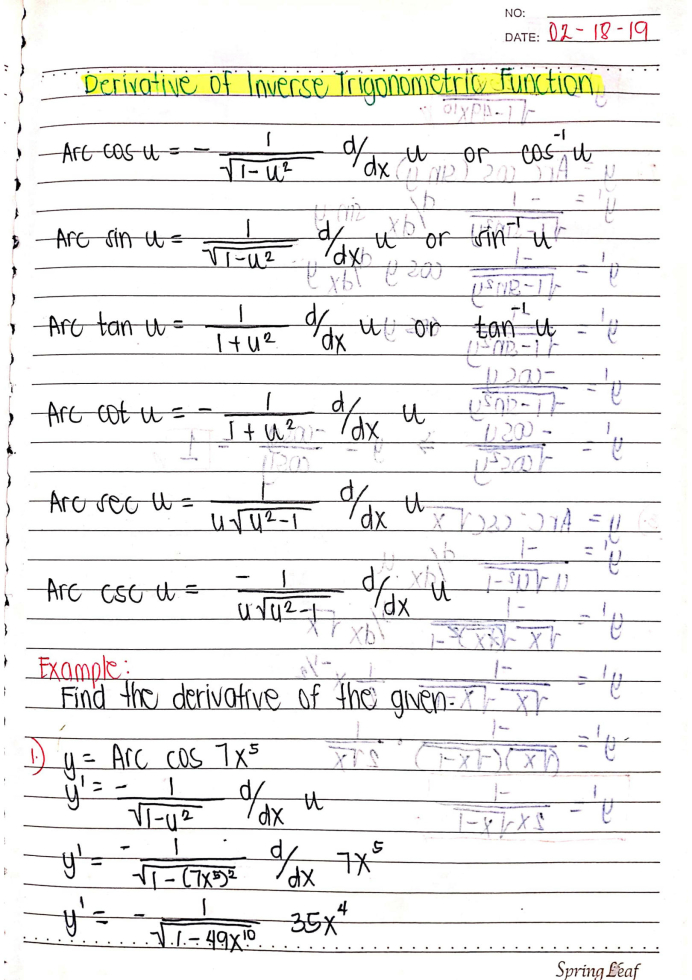 NO:
DATE: 02-18-19
Derivative of Inverse Trigonometric Function
Arc cos u = - 1/√(1-u²) d/dx u or cos⁻¹ u
Arc sin u = 1/√(1-u²) d/dx u or sin⁻¹ u
Arc tan u = 1/(1+u²) d/dx u or tan⁻¹ u
Arc cot u = - 1/(1+u²) d/dx u
Arc sec u = 1/(u√(u²-1)) d/dx u
Arc csc u = - 1/(u√(u²-1)) d/dx u
Example:
Find the derivative of the given:
1.) y = Arc cos 7x⁵
y' = - 1/√(1-u²) d/dx u
y' = - 1/√(1-(7x⁵)²) d/dx 7x⁵
y' = - 1/√(1-49x¹⁰) 35x⁴
Spring Leaf